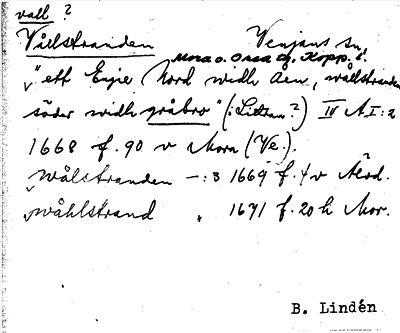 vall ?
Vållstranden Venjans sn,
Mora o. Orsa tg, Kopp. l.
"ett Engie Nord widh Åen, wållstranden
söder widh gråbro" (: Litsen ?) IV A I:2
1668 f. 90 v Mora (Ve.).
wålstranden —:3 1669 f. 4 v Älvd.
wåhlstrand , 1671 f. 20 h Mor.
B. Lindén